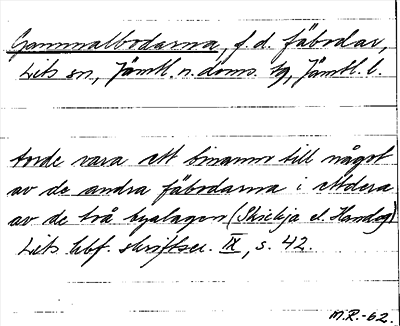 Gammalbodarna, f.d. fäbodar,
Lits sn, Jämtl. n. doms. tg, Jämtl. l.
torde vara ett binamn till något
av de andra fäbodarna i ettdera
av de två byalagen (Skickja el. Handog)
Lits hbf. skriftser. IX, s. 42.
M.R.-62.